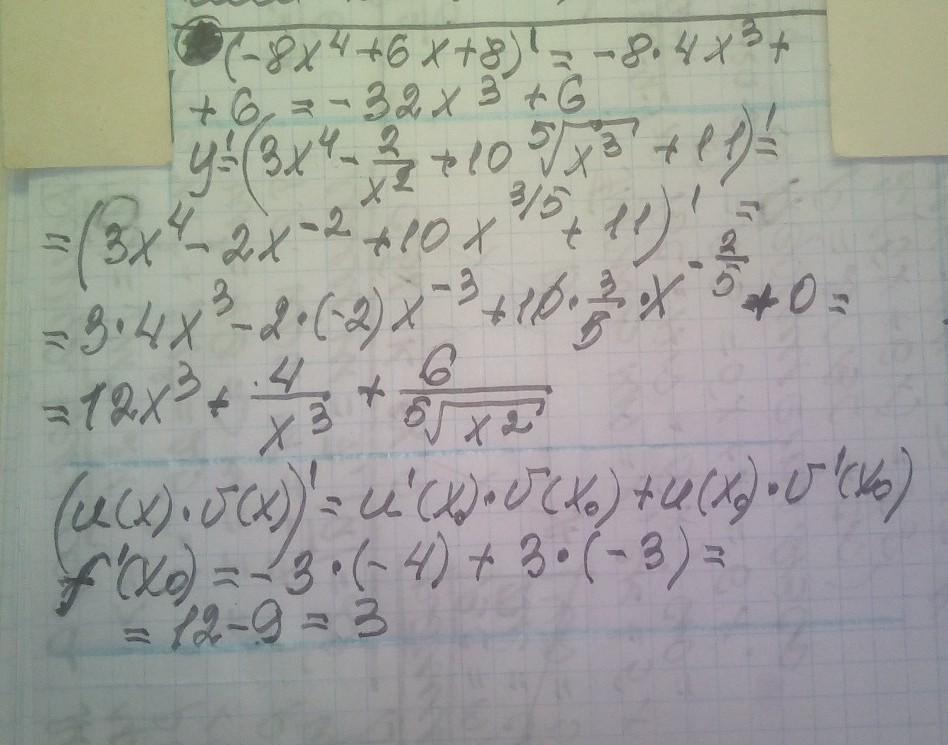 (-8x⁴+6x+8)' = -8·4x³+
+6 = -32x³+6
y'=(3x⁴ - 2/x² + 10 ⁵√x³ + 11)'=
=(3x⁴ - 2x⁻² + 10x^3/5 + 11)' =
= 3·4x³ - 2·(-2)x⁻³ + 10·3/5·x^-2/5 + 0 =
= 12x³ + 4/x³ + 6/⁵√x²
(u(x)·v(x))' = u'(x₀)·v(x₀)+u(x₀)·v'(x₀)
f'(x₀) = -3·(-4) + 3·(-3) =
= 12-9 = 3